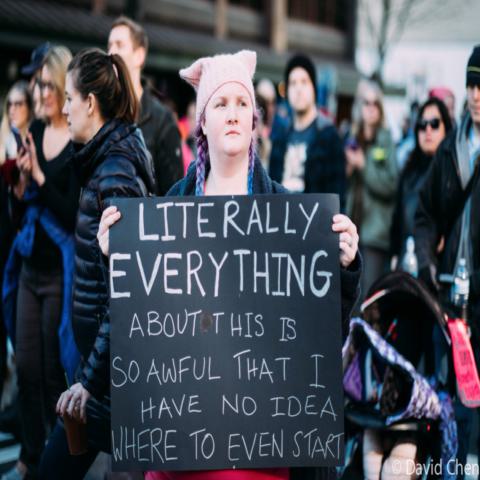 LITERALLY
EVERYTHING
ABOUT THIS IS
SO AWFUL THAT I
HAVE NO IDEA
WHERE TO EVEN START
© David Chen